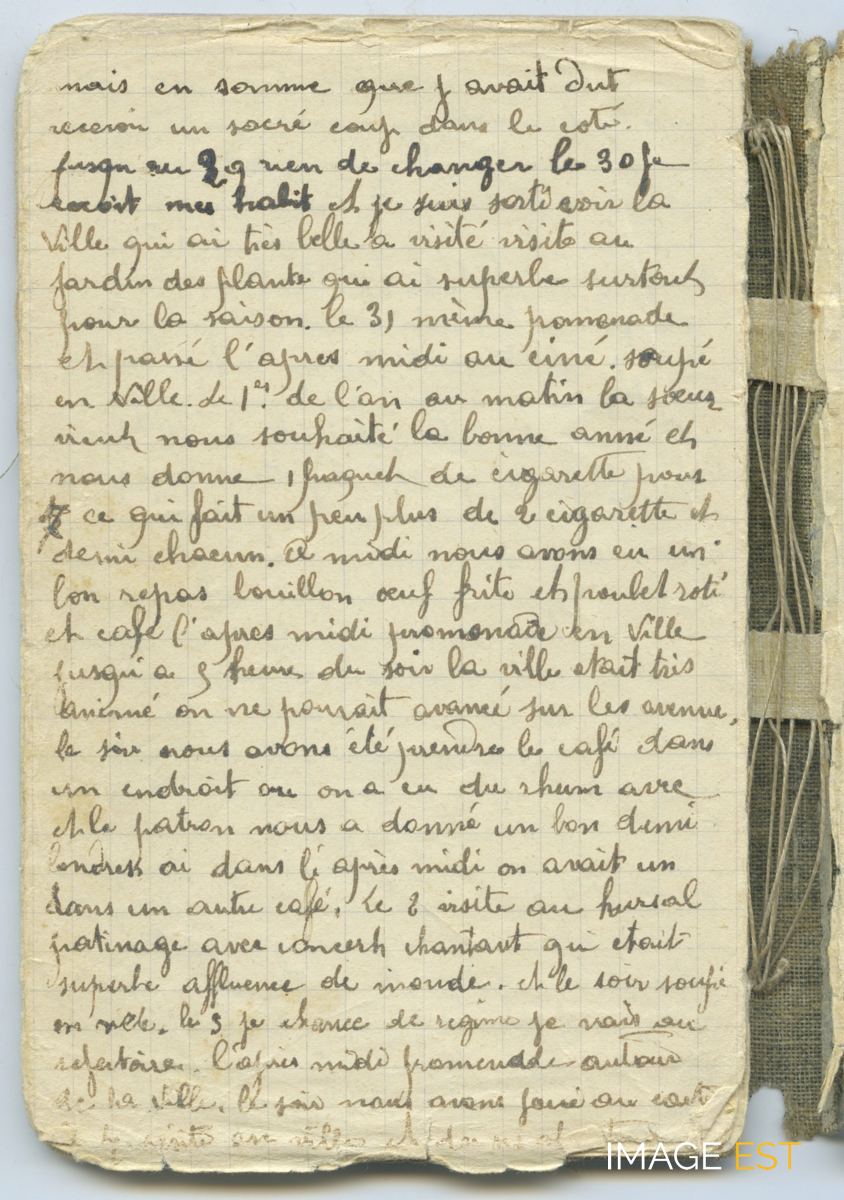 mais en somme que j avait dut
recevoir un sacré coup dans le coté.
jusqu au 29 rien de changer le 30 je
recoit mes habit et je suis sorti voir la
Ville qui ai très belle a visité visite au
jardin des plante qui ai superbe surtout
pour la saison. le 31 même promenade
et passé l'apres midi au ciné. soupé
en Ville. le 1er de l'an au matin la soeur
vient nous souhaité la bonne anné et
nous donne 1 paquet de cigarette pour
7 ce qui fait un peu plus de 2 cigarette et
demi chacun. A midi nous avons eu un
bon repas bouillon oeuf frite et poulet roti
et café l'apres midi promenade en Ville
jusqu'a 5 heure du soir la ville etait très
animé on ne pouvait avancé sur les avenue,
le soir nous avons été prendre le café dans
un endroit ou on a eu du rhum avec
et le patron nous a donné un bon demi
londres ai dans l'après midi on avait un
dans un autre café. Le 2 visite au kursal
patinage avec concert chantant qui etait
superbe affluence de monde. et le soir soupé
en ville. le 3 je chance de regime je vais au
refectoire. l'apres midi promenade autour
de la ville. le soir nous avons joué au
ville et
IMAGE EST